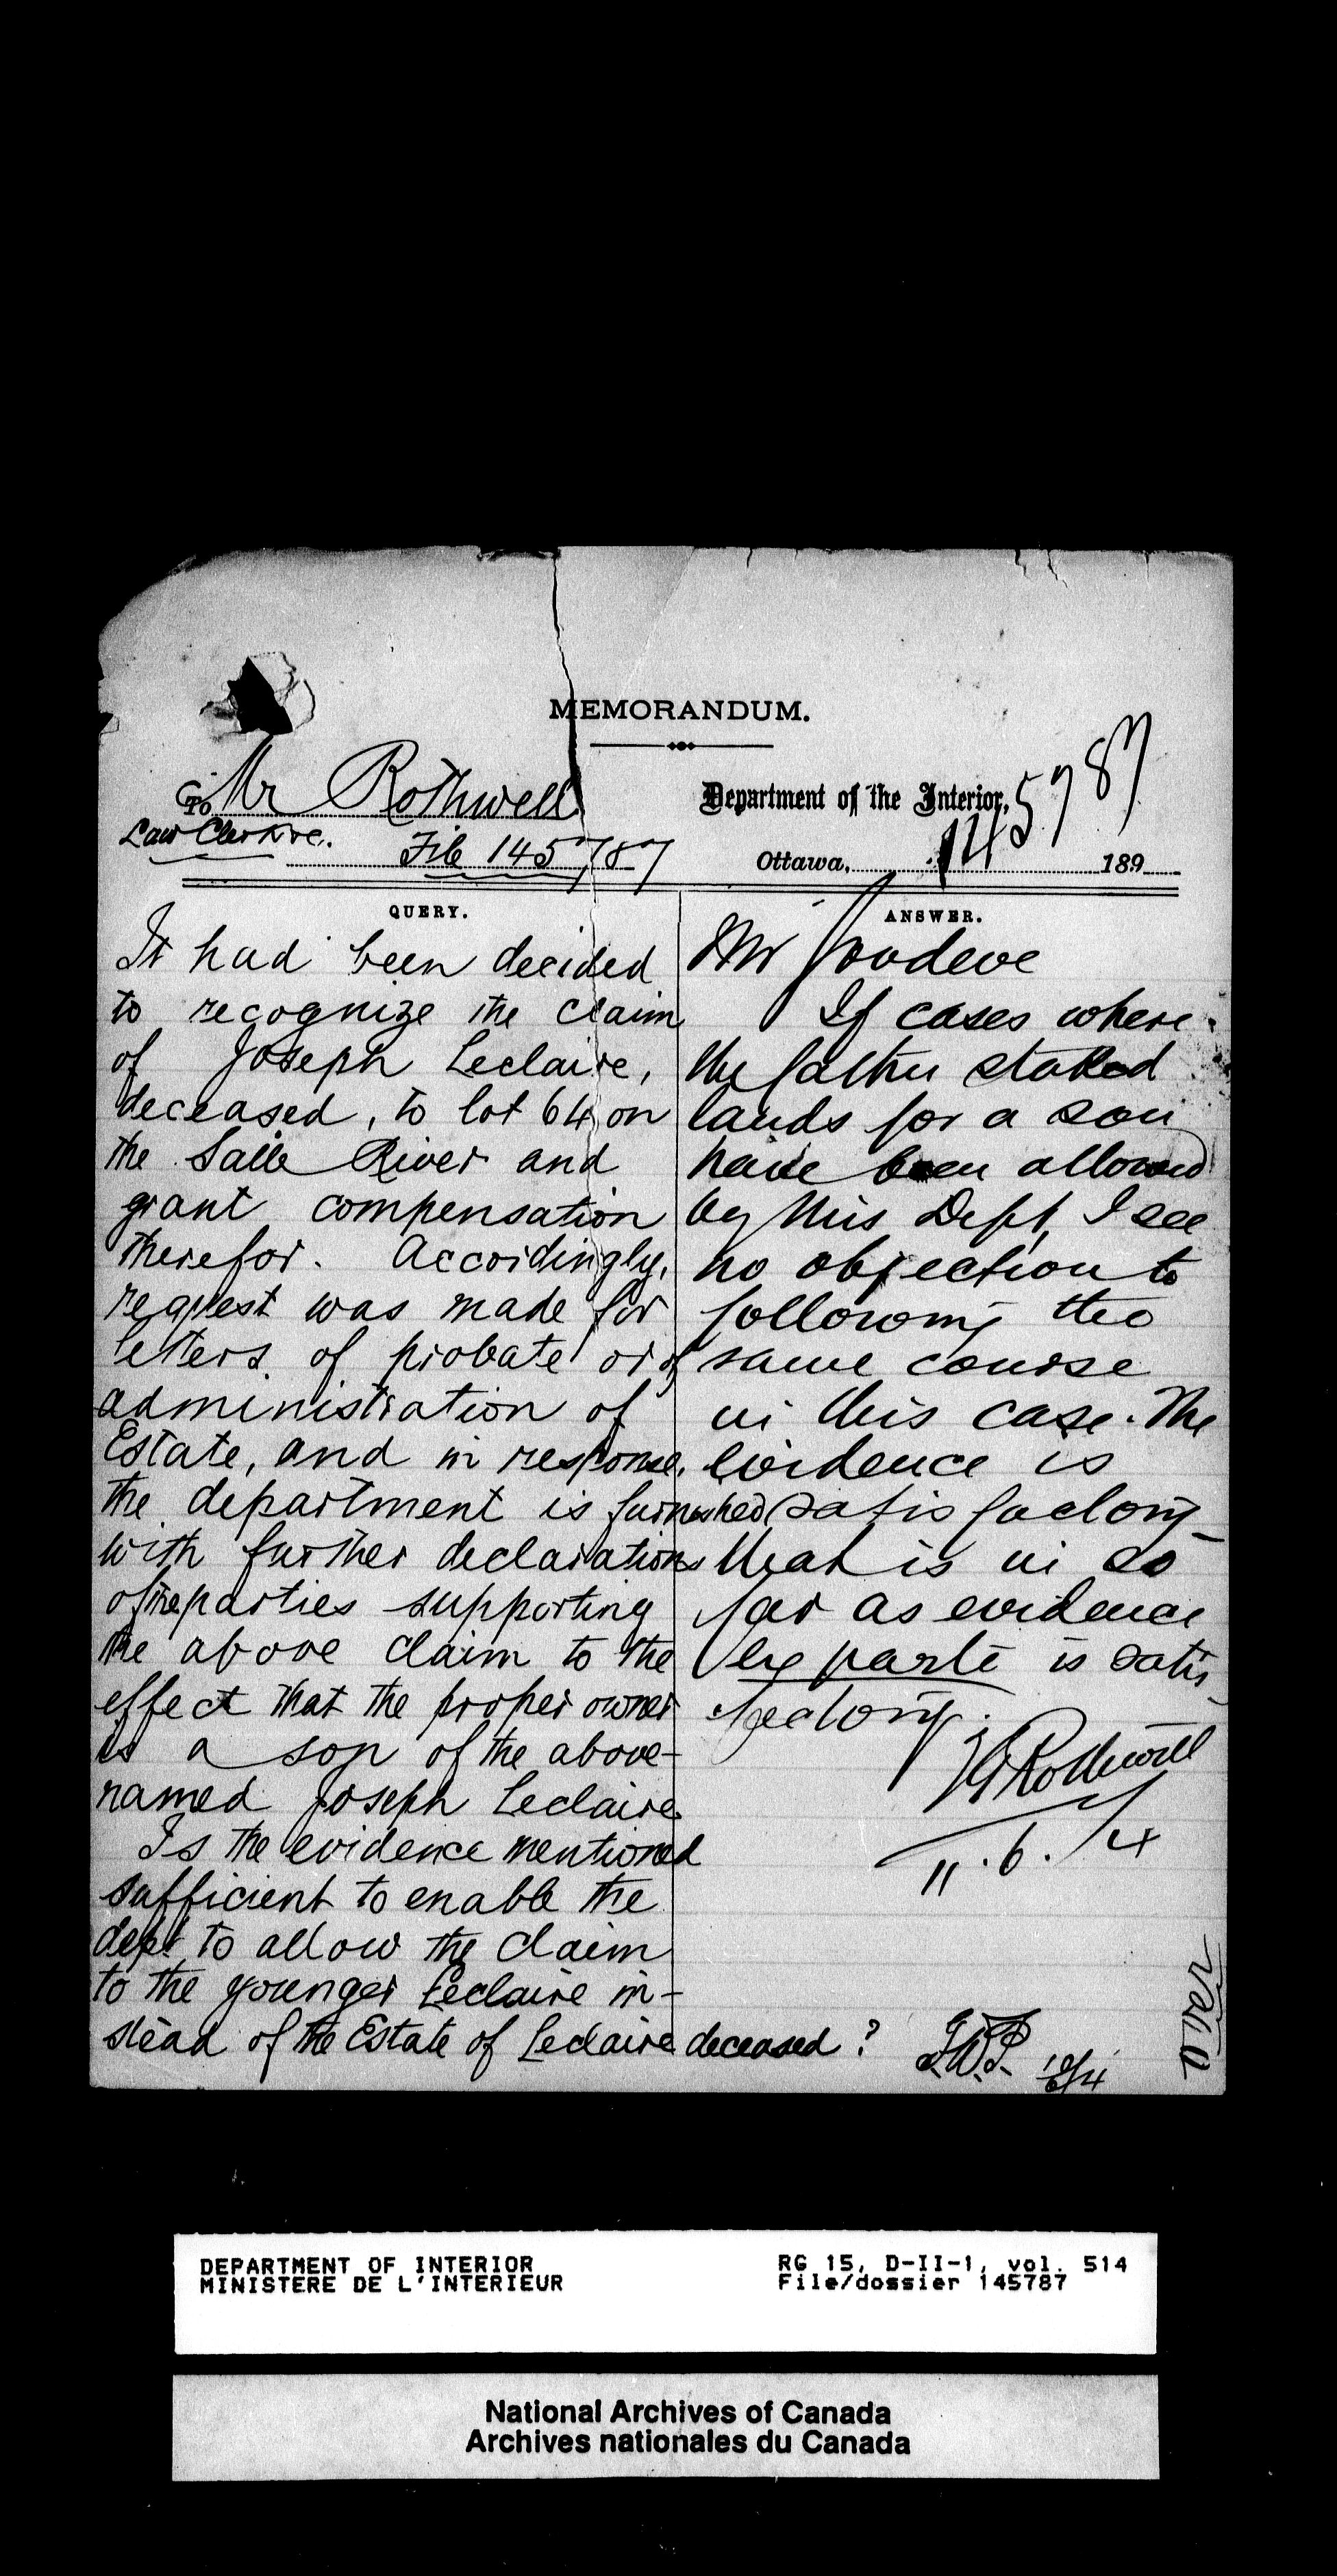 MEMORANDUM.
To Mr Rothwell
Law Clerk &c.
File 145787
Department of the Interior,
145787
Ottawa, 189
QUERY.
It had been decided
to recognize the claim
of Joseph Leclaire,
deceased, to lot 64 on
the Salle River and
grant compensation
therefor. Accordingly,
request was made for
letters of probate or of
administration of
Estate, and in response,
the department is furnished
with further declarations
of the parties supporting
the above claim to the
effect that the proper owner
is a son of the above-
named Joseph Leclaire.
Is the evidence mentioned
sufficient to enable the
dept. to allow the claim
to the younger Leclaire in-
stead of the Estate of Leclaire deceased?
10/6/4
ANSWER.
Mr Goodeve
If cases where
the father staked
lands for a son
have been allowed
by this Dept, I see
no objection to
following the
same course
in this case. The
evidence is
satisfactory
that is in so
far as evidence
ex parte is satis-
factory.
Rothwell
11.6.4
DEPARTMENT OF INTERIOR
MINISTERE DE L'INTERIEUR
RG 15, D-II-1, vol. 514
File/dossier 145787
National Archives of Canada
Archives nationales du Canada